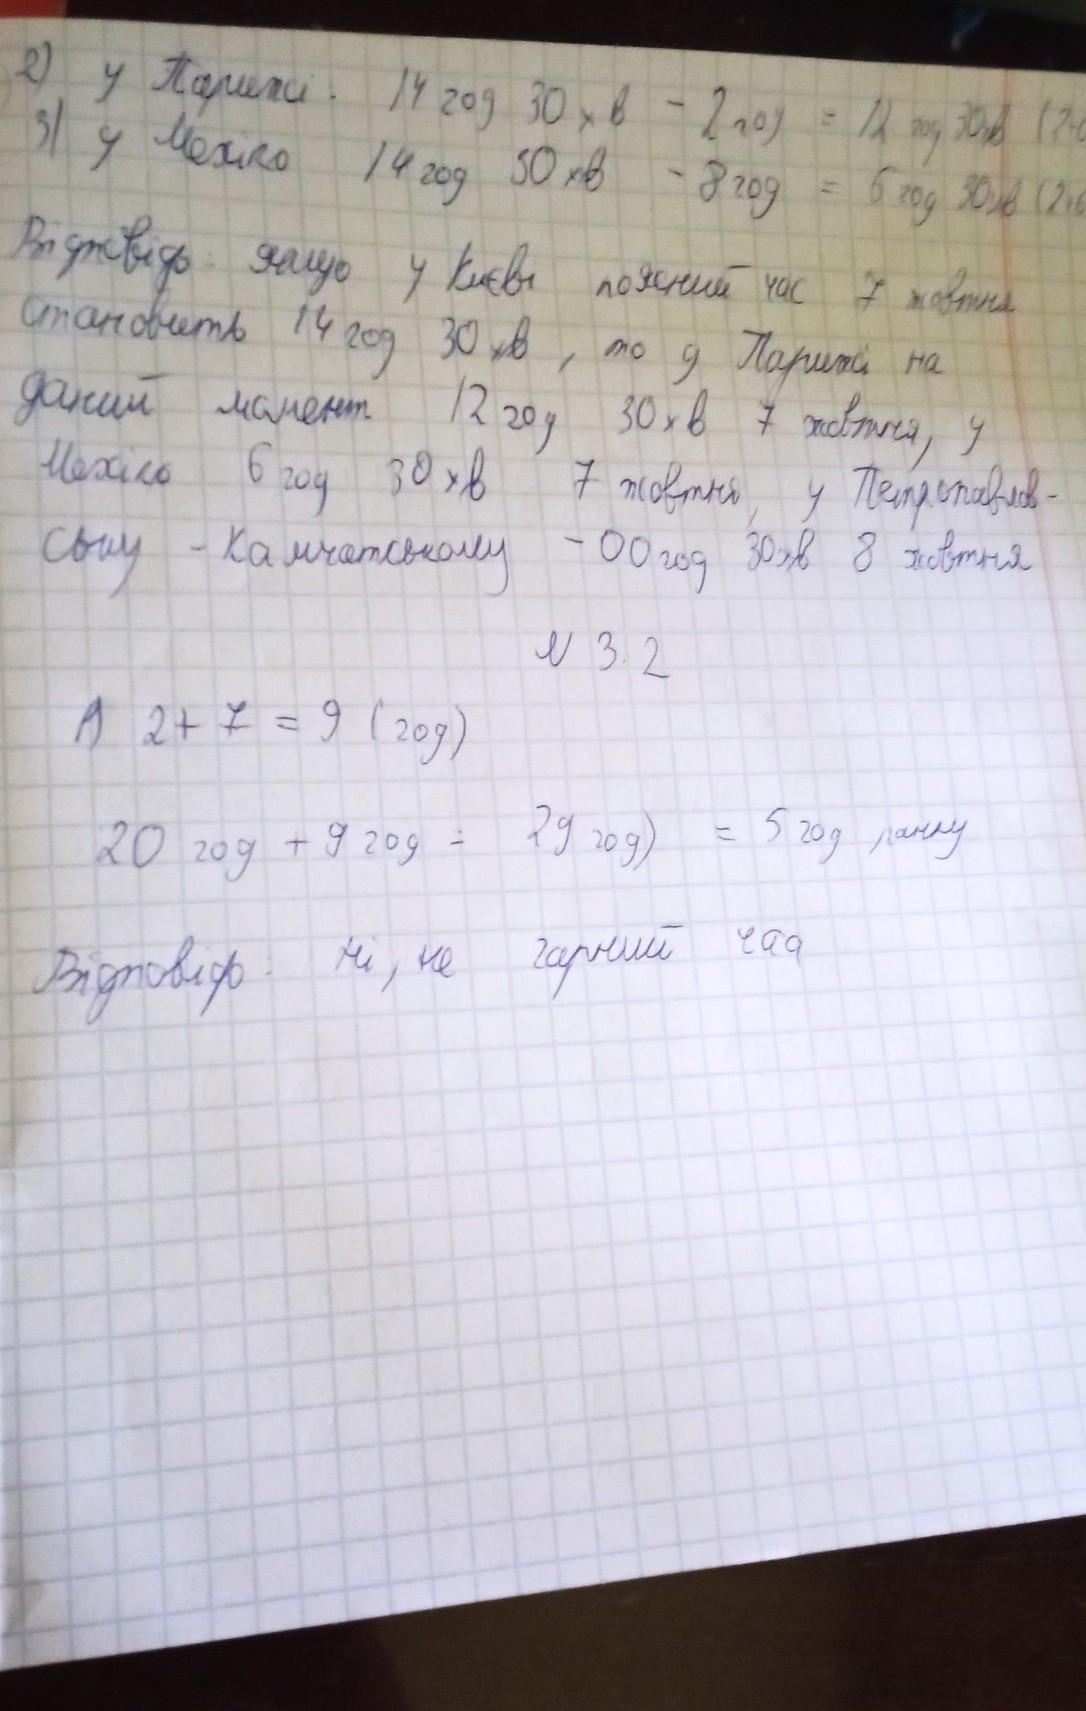 2) у Парижі. 14 год 30 хв - 2 год = 12 год 30хв (2+
3) у Мехіко 14 год 30 хв - 8 год = 6 год 30хв (2+6
Відповідь: якщо у Києві поясний час 7 жовтня
становить 14 год 30 хв, то у Парижі на
даний момент 12 год 30 хв 7 жовтня, у
Мехіко 6 год 30 хв 7 жовтня, у Петропавлов-
ську - Камчатському - 00 год 30хв 8 жовтня
N 3.2
1) 2+7 = 9 (год)
20 год + 9 год = 29 год) = 5 год ранку
Відповідь: Ні, не гарний час